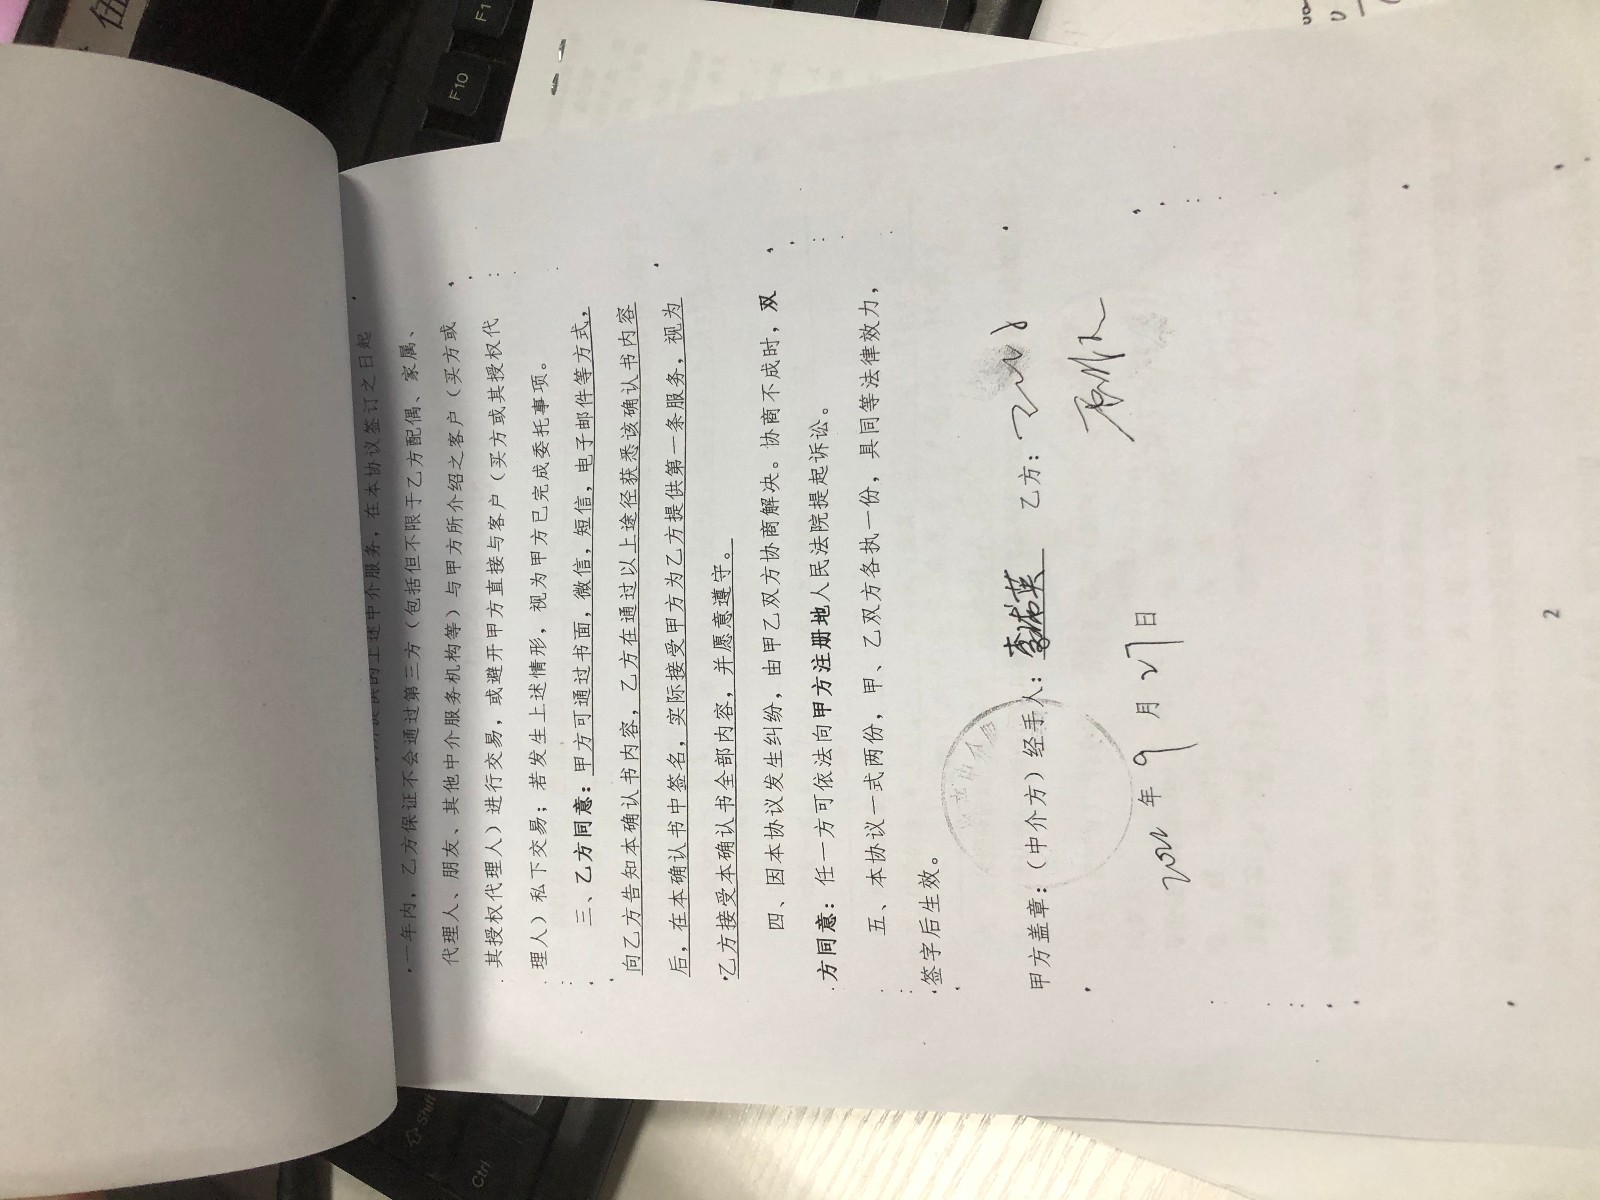 的上述中介服务，在本协议签订之日起
一年内，乙方保证不会通过第三方（包括但不限于乙方配偶、家属、
代理人、朋友、其他中介服务机构等）与甲方所介绍之客户（买方或
其授权代理人）进行交易，或避开甲方直接与客户（买方或其授权代
理人）私下交易；若发生上述情形，视为甲方已完成委托事项。
三、乙方同意：甲方可通过书面，微信，短信，电子邮件等方式，
向乙方告知本确认书内容，乙方在通过以上途径获悉该确认书内容
后，在本确认书中签名，实际接受甲方为乙方提供第一条服务，视为
乙方接受本确认书全部内容，并愿意遵守。
四、因本协议发生纠纷，由甲乙双方协商解决。协商不成时，双
方同意：任一方可依法向甲方注册地人民法院提起诉讼。
五、本协议一式两份，甲、乙双方各执一份，具同等法律效力，
签字后生效。
甲方盖章：（中介方）经手人： 乙方：
年 9 月 27 日
2
F10
F1
Shift
Ctrl
伍